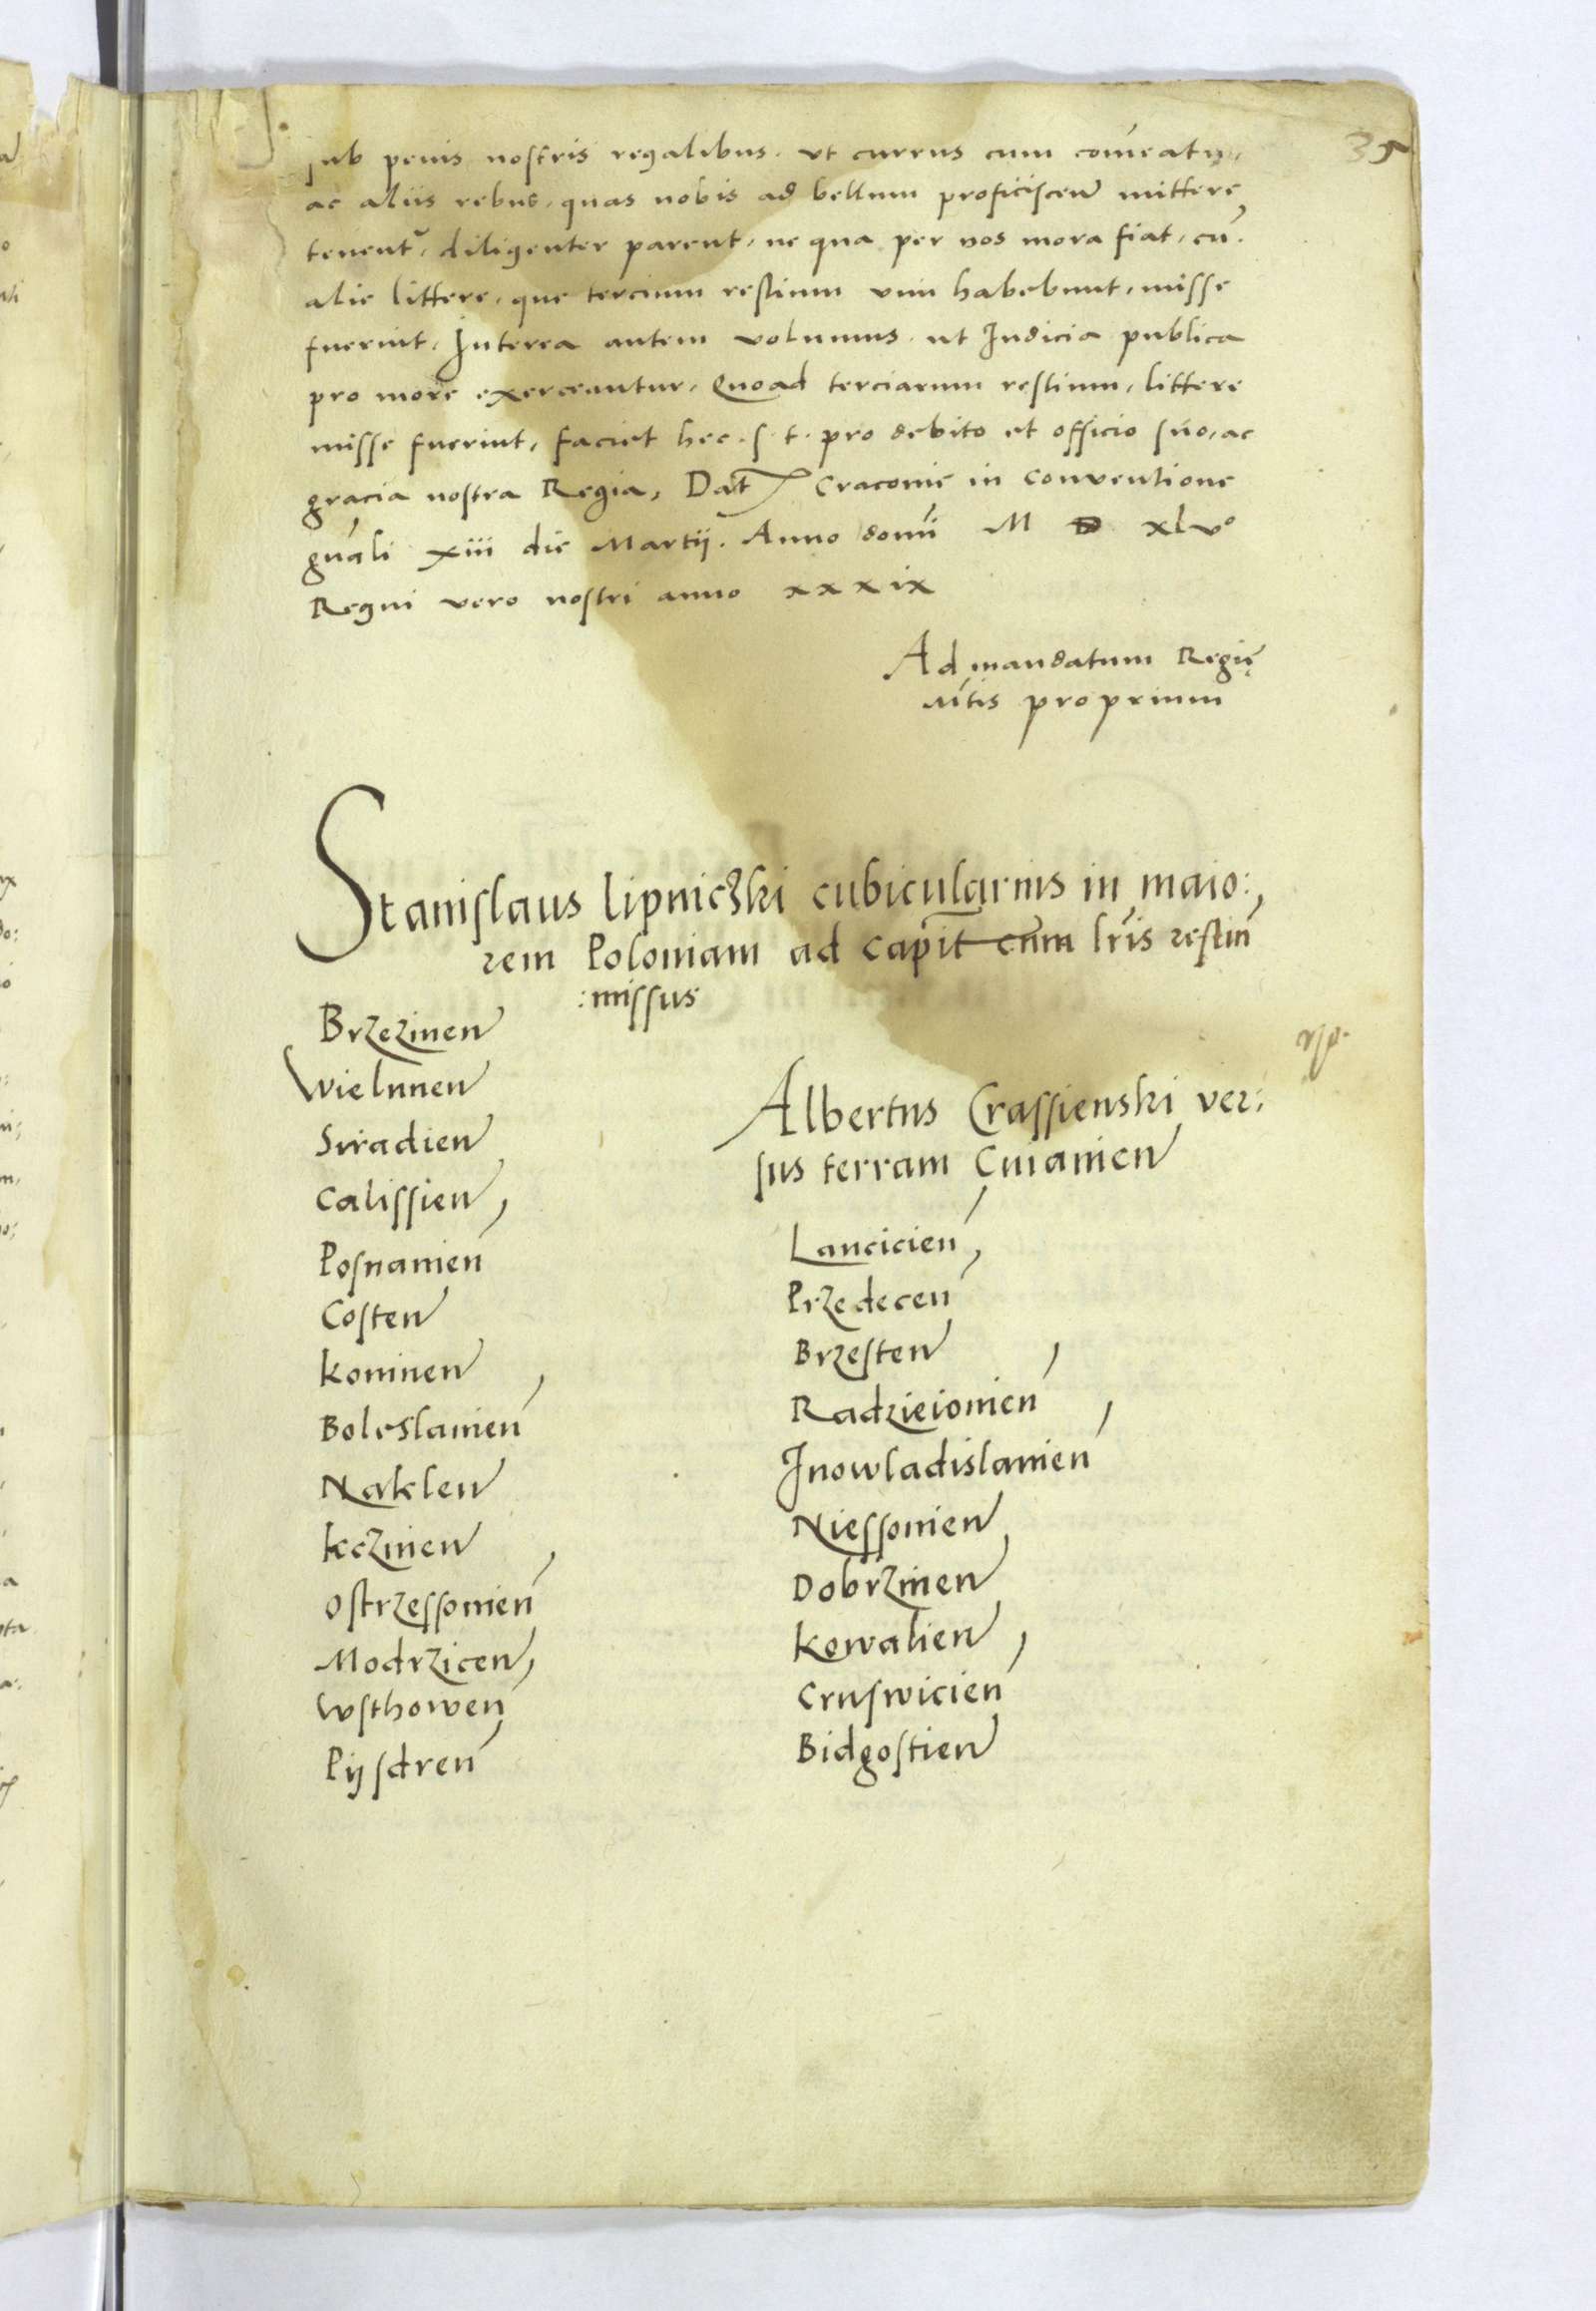 35
sub penis nostris regalibus. ut currus cum comeatu,
ac aliis rebus, quas nobis ad bellum proficiscen mittere
tenent, diligenter parent, ne qua per nos mora fiat, cu.
alie littere, que tercium restium vim habebunt, misse
fuerint. Interea autem volumus. ut Judicia publica
pro more exerceantur, Quoad terciarum restium, littere
misse fuerint, faciet hec. s. t. pro debito et officio suo, ac
gracia nostra Regia, Dat Cracovie in conventione
gnali xiii die Martij. Anno domi M D xlv°
Regni vero nostri anno xxxix
Ad mandatum Regię
Mtis proprium
Stanislaus lipniczki cubicularius in maio:
rem Poloniam ad capit cum lris restiu
:missus
Brzezinen
Wielunen
Siradien
Calissien,
Posnanien
Costen
Koninen
Boleslavien
Naklen
Kczinen
Ostrzessovien
Modrzicen,
Wsthowen
Pijsdren
Albertus Crassienski ver:
sus terram Cuiavien
Lancicien,
Przedecen
Brzesten
Radzieiovien
Jnowladislavien
Niessovien
Dobrzinen
Kowalien,
Cruswicien
Bidgostien